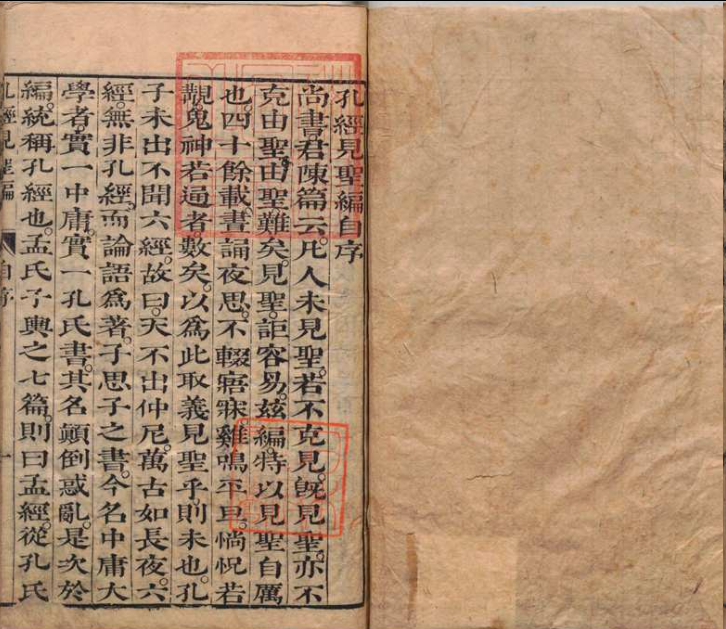 孔經見聖編自序
尚書君陳篇云。凡人未見聖。若不克見。旣見聖。亦不
克由聖。由聖難矣。見聖。詎容易。茲編。特以見聖自厲
也。四十餘載。晝誦夜思。不輟寤寐。雞鳴平旦。惝怳若
覿。鬼神若通者。數矣。以爲此取義見聖乎。則未也。孔
子未出。不聞六經。故曰。天不出仲尼。萬古如長夜。六
經。無非孔經。而論語爲著。子思子之書。今名中庸大
學者。實一中庸。實一孔氏書。其名顚倒惑亂。是次於
編。統稱孔經也。孟氏子輿之七篇。則曰孟經。從孔氏
孔經見聖編 自序 一